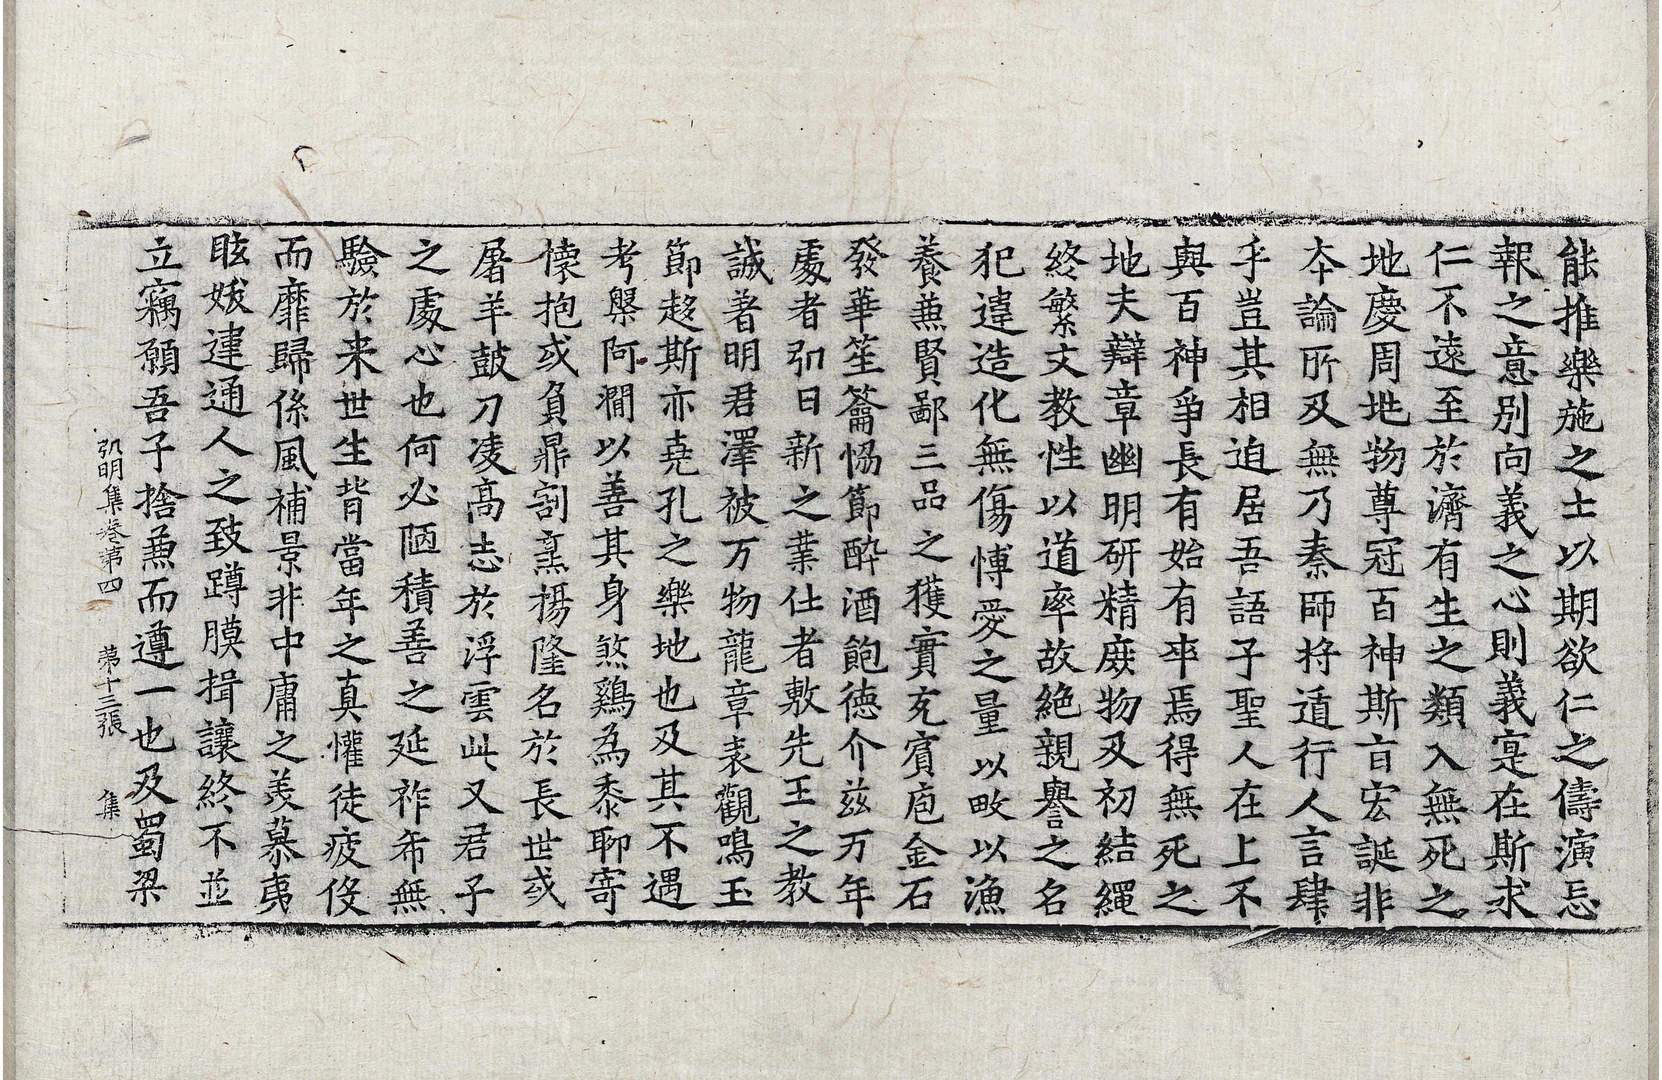 能推樂施之士以期欲仁之儔演忘
報之意別向義之心則義寔在斯求
仁不遠至於濟有生之類入無死之
地慶周兆物尊冠百神斯旨宏誕非
夲論所及無乃秦師将遁行人言肆
乎豈其相迫居吾語子聖人在上不
與百神爭長有始有卒焉得無死之
地夫辯章幽明研精庶物及初結繩
終繁文教性以道率故絶親譽之名
犯違造化無傷愽愛之量以畋以漁
養兼賢鄙三品之獲實充賓庖金石
發華笙籥恊節醉酒飽徳介兹万年
處者弘日新之業仕者敷先王之教
誠著明君澤被万物龍章表觀鳴玉
節趍斯亦堯孔之樂地也及其不遇
考槃阿澗以善其身煞鷄為黍聊寄
懐抱或負鼎割烹揚隆名於長世或
屠羊皷刀凌髙志於浮雲此又君子
之處心也何必陋積善之延祚希無
驗於来世生背當年之真懽徒疲役
而靡歸係風補景非中庸之羨慕夷
眩妖違通人之致蹲膜揖讓終不並
立竊願吾子捨兼而遵一也及蜀梁
弘明集卷第四　第十三張　集